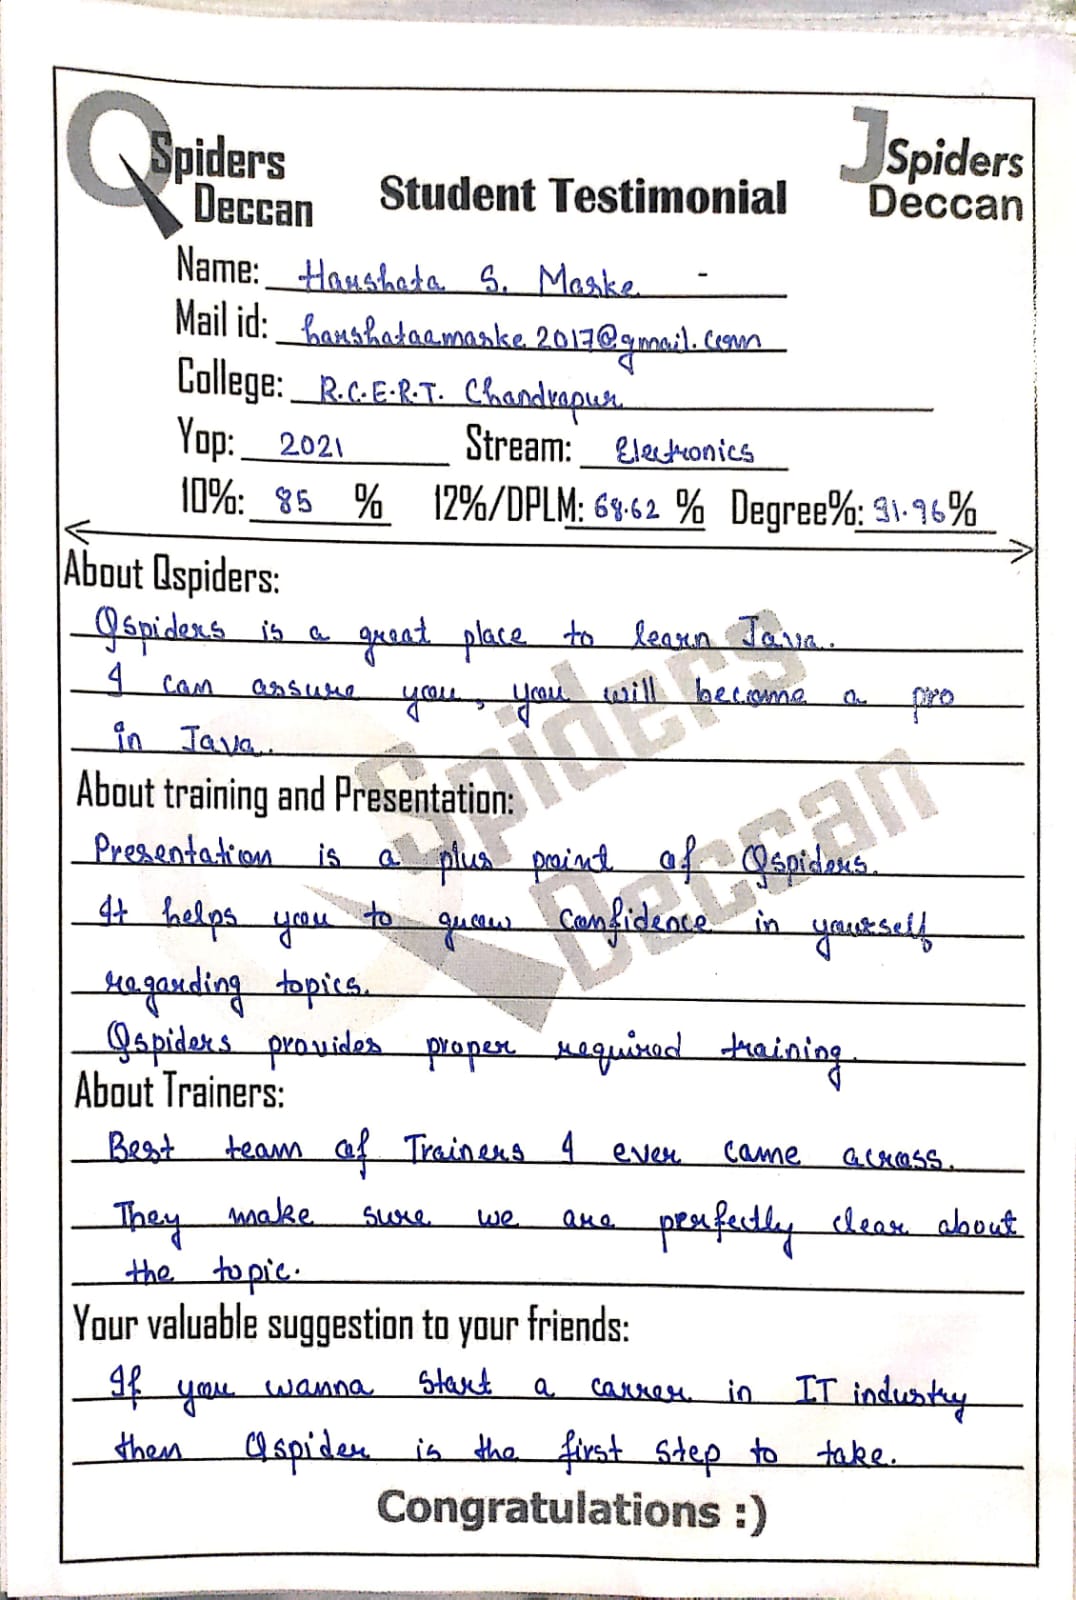 QSpiders
Deccan
JSpiders
Deccan
Student Testimonial
Name: Harshata S. Maske -
Mail id: harshataamaske2017@gmail.com
College: R.C.E.R.T. Chandrapur
Yop: 2021 Stream: Electronics
10%: 85 % 12%/DPLM: 68.62 % Degree%: 91.96%
About Qspiders:
Qspiders is a great place to learn Java.
I can assure you, you will become a pro
in Java.
About training and Presentation:
Presentation is a plus point of Qspiders.
It helps you to grow confidence in yourself
regarding topics.
Qspiders provides proper required training.
About Trainers:
Best team of Trainers I ever came across.
They make sure we are perfectly clear about
the topic.
Your valuable suggestion to your friends:
If you wanna start a carrer in IT industry
then Qspider is the first step to take.
Congratulations :)
Spiders
Deccan